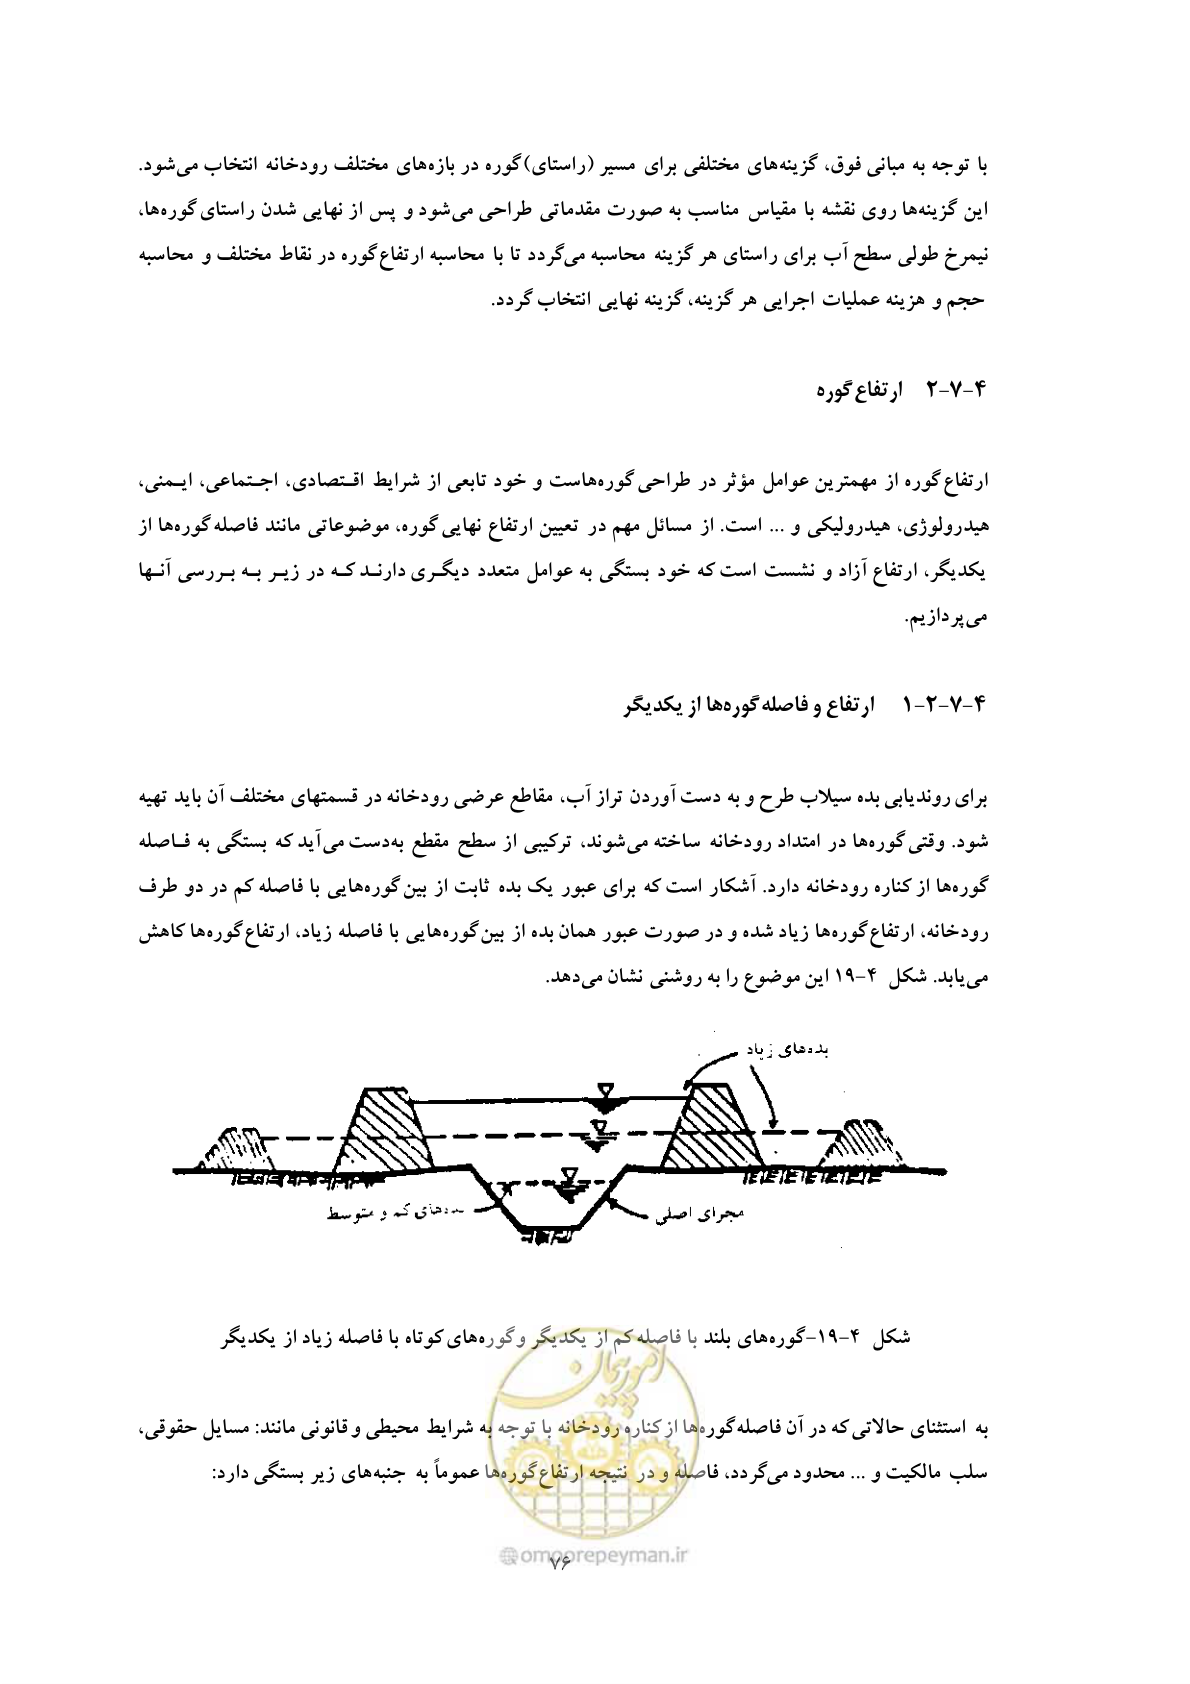 با توجه به مبانی فوق، گزینه‌های مختلفی برای مسیر (راستای) گوره در بازه‌های مختلف رودخانه انتخاب می‌شود.
این گزینه‌ها روی نقشه با مقیاس مناسب به صورت مقدماتی طراحی می‌شود و پس از نهایی شدن راستای گوره‌ها،
نیمرخ طولی سطح آب برای راستای هر گزینه محاسبه می‌گردد تا با محاسبه ارتفاع گوره در نقاط مختلف و محاسبه
حجم و هزینه عملیات اجرایی هر گزینه، گزینه نهایی انتخاب گردد.
۴-۷-۲ ارتفاع گوره
ارتفاع گوره از مهمترین عوامل مؤثر در طراحی گوره‌هاست و خود تابعی از شرایط اقـتصادی، اجـتماعی، ایـمنی،
هیدرولوژی، هیدرولیکی و ... است. از مسائل مهم در تعیین ارتفاع نهایی گوره، موضوعاتی مانند فاصله گوره‌ها از
یکدیگر، ارتفاع آزاد و نشست است که خود بستگی به عوامل متعدد دیگـری دارنـد کـه در زیـر بـه بـررسی آنـها
می‌پردازیم.
۴-۷-۲-۱ ارتفاع و فاصله گوره‌ها از یکدیگر
برای روندیابی بده سیلاب طرح و به دست آوردن تراز آب، مقاطع عرضی رودخانه در قسمتهای مختلف آن باید تهیه
شود. وقتی گوره‌ها در امتداد رودخانه ساخته می‌شوند، ترکیبی از سطح مقطع به‌دست می‌آید که بستگی به فـاصله
گوره‌ها از کناره رودخانه دارد. آشکار است که برای عبور یک بده ثابت از بین گوره‌هایی با فاصله کم در دو طرف
رودخانه، ارتفاع گوره‌ها زیاد شده و در صورت عبور همان بده از بین گوره‌هایی با فاصله زیاد، ارتفاع گوره‌ها کاهش
می‌یابد. شکل ۴-۱۹ این موضوع را به روشنی نشان می‌دهد.
بده‌های زیاد
مجرای اصلی
بده‌های کم و متوسط
شکل ۴-۱۹-گوره‌های بلند با فاصله کم از یکدیگر و گوره‌های کوتاه با فاصله زیاد از یکدیگر
امور پیمان
به استثنای حالاتی که در آن فاصله گوره‌ها از کناره رودخانه با توجه به شرایط محیطی و قانونی مانند: مسایل حقوقی،
سلب مالکیت و ... محدود می‌گردد، فاصله و در نتیجه ارتفاع گوره‌ها عموماً به جنبه‌های زیر بستگی دارد:
omoorepeyman.ir
۷۶